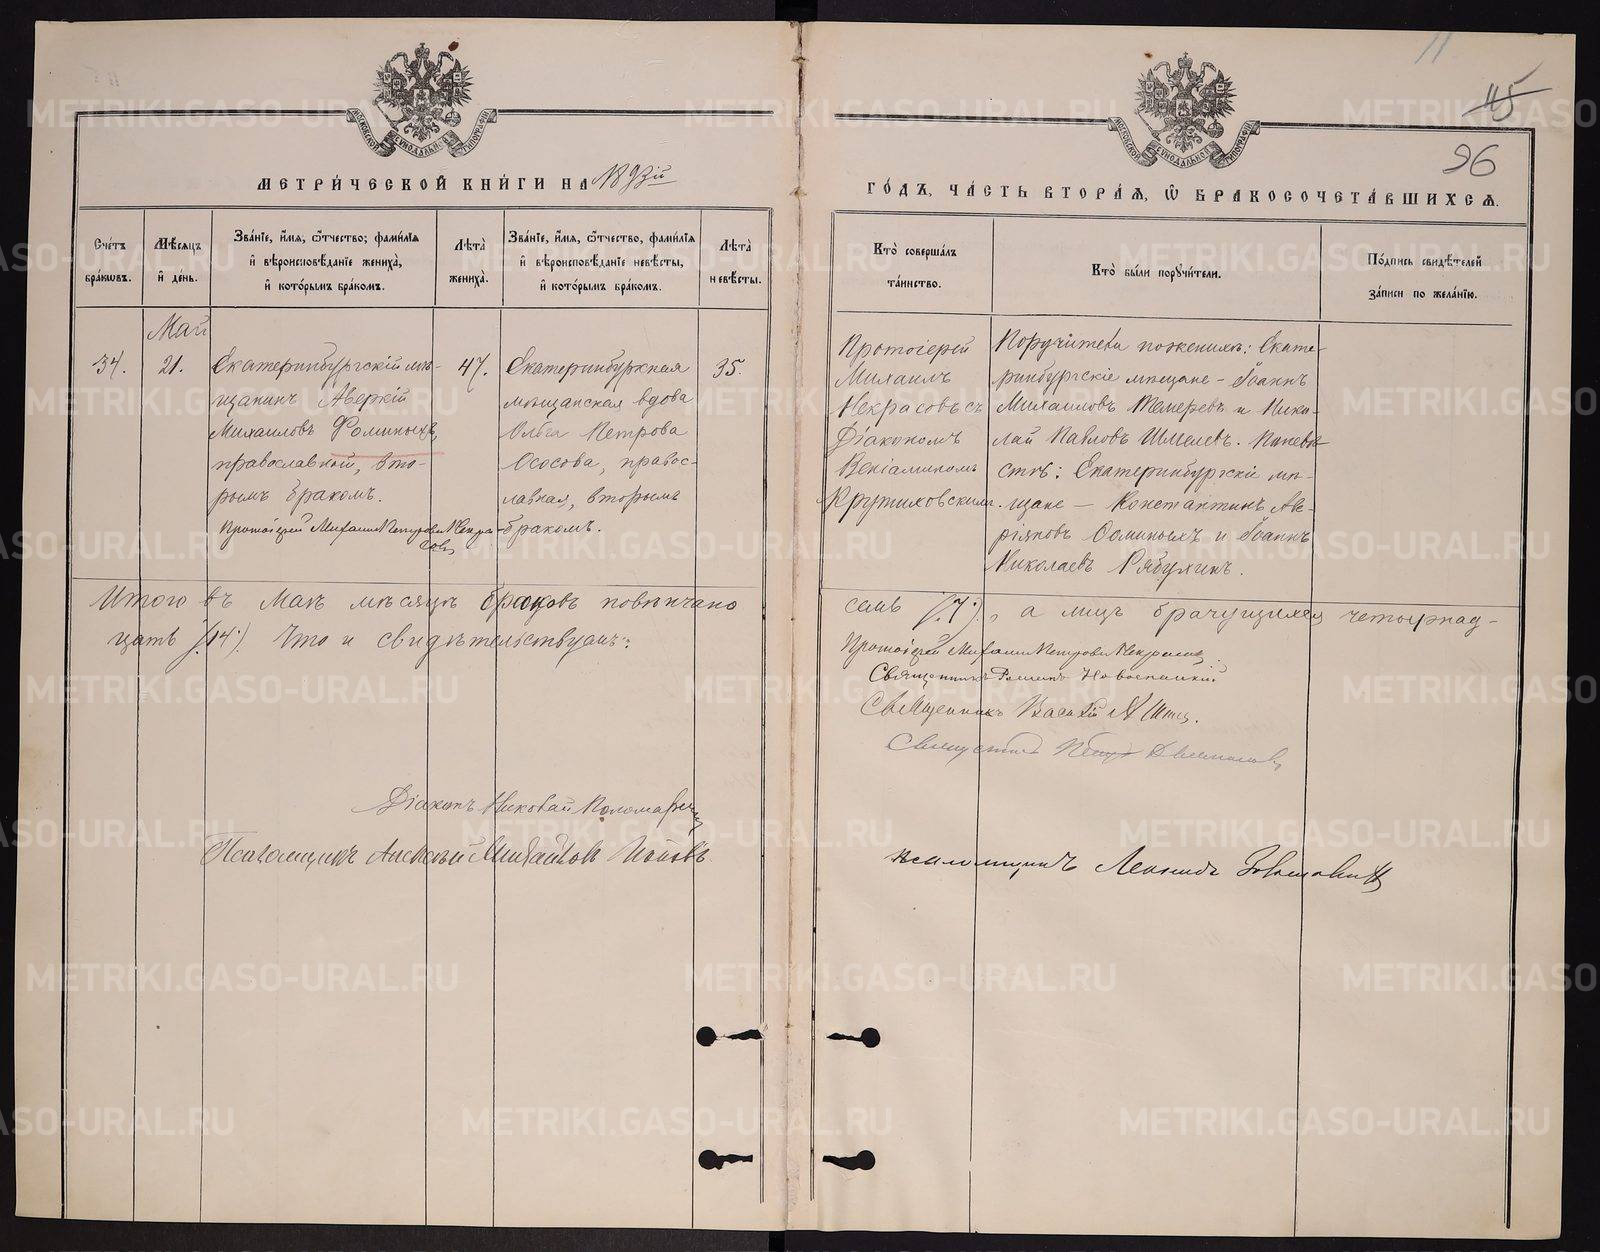 11
45
96
МОСКОВСКОЙ СѴНОДАЛЬНОЙ ТИПОГРАФІИ
МЕТРИ́ЧЕСКОЙ КНИ́ГИ НА 1893й
МОСКОВСКОЙ СѴНОДАЛЬНОЙ ТИПОГРАФІИ
ГО́ДЪ, ЧА́СТЬ ВТОРА́Ѧ, Ѽ БРАКОСОЧЕТА́ВШИХСѦ.
Сче́тъ бра́кѡвъ.
Мѣ́сѧцъ и҆ де́нь.
Зва́нїе, и҆́мѧ, ѻ҆́тчество, фами́лїѧ и҆ вѣроисповѣ́данїе жениха̀, и҆ кото́рымъ бра́комъ.
Лѣта̀ жениха̀.
Зва́нїе, и҆́мѧ, ѻ҆́тчество, фами́лїѧ и҆ вѣроисповѣ́данїе невѣ́сты, и҆ кото́рымъ бра́комъ.
Лѣта̀ невѣ́сты.
Кто̀ соверша́лъ та́инство.
Кто̀ бы́ли порꙋчи́тели.
По́дпись свидѣ́телей за́писи по жела́нїю.
Май
34.
21.
Екатеринбургскій мѣ-
щанинъ Аверкій
Михаиловъ Ѳоминыхъ,
православной, вто-
рымъ бракомъ.
Протоіерей Михаилъ Петровъ Некра-
совъ
47.
Екатеринбургская
мѣщанская вдова
Ольга Петрова
Ососова, правос-
лавная, вторымъ
бракомъ.
35.
Протоіерей
Михаилъ
Некрасовъ съ
Діакономъ
Веніаминомъ
Крутиховскимъ.
Поручители по женихѣ: Екате-
ринбургскіе мѣщане - Іоаннъ
Михаиловъ Темеревъ и Нико-
лай Павловъ Шмелевъ. По невѣ-
стѣ: Екатеринбургскіе мѣ-
щане - Константинъ Аве-
ріяновъ Ѳоминыхъ и Іоаннъ
Николаевъ Рябухинъ.
Итого въ Маѣ мѣсяцѣ браковъ повѣнчано
семь (.7.), а лицъ брачущихся четырнад-
цать (.14.). Что и свидѣтельствуемъ:
Протоіерей Михаилъ Петровъ Некрасовъ
Священникъ
Священникъ Василій
Священникъ
Діаконъ Николай Пономаревъ
Псаломщикъ Алексѣй Михайловъ Поповъ
Псаломщикъ Леонидъ
METRIKI.GASO-URAL.RU